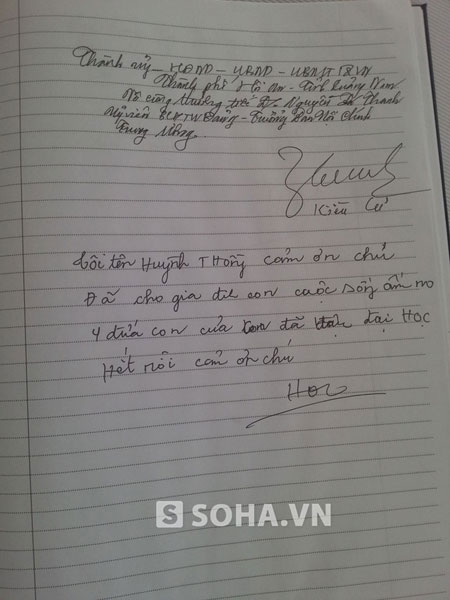 Thành uỷ - HĐND - UBND - UBMTTQVN
Thành phố Hội An - Tỉnh Quảng Nam
Vô cùng thương tiếc Đ/c Nguyễn Bá Thanh
Uỷ viên BCHTW Đảng - Trưởng Ban Nội Chính
Trung Ương.
Kiều Cư
Tôi tên Huỳnh T Hồng cảm ơn chú
Đã cho gia đì con cuộc sống ấm no
4 đứa con của con đã đại Học
Hết rồi cảm ơn chú
SOHA.VN